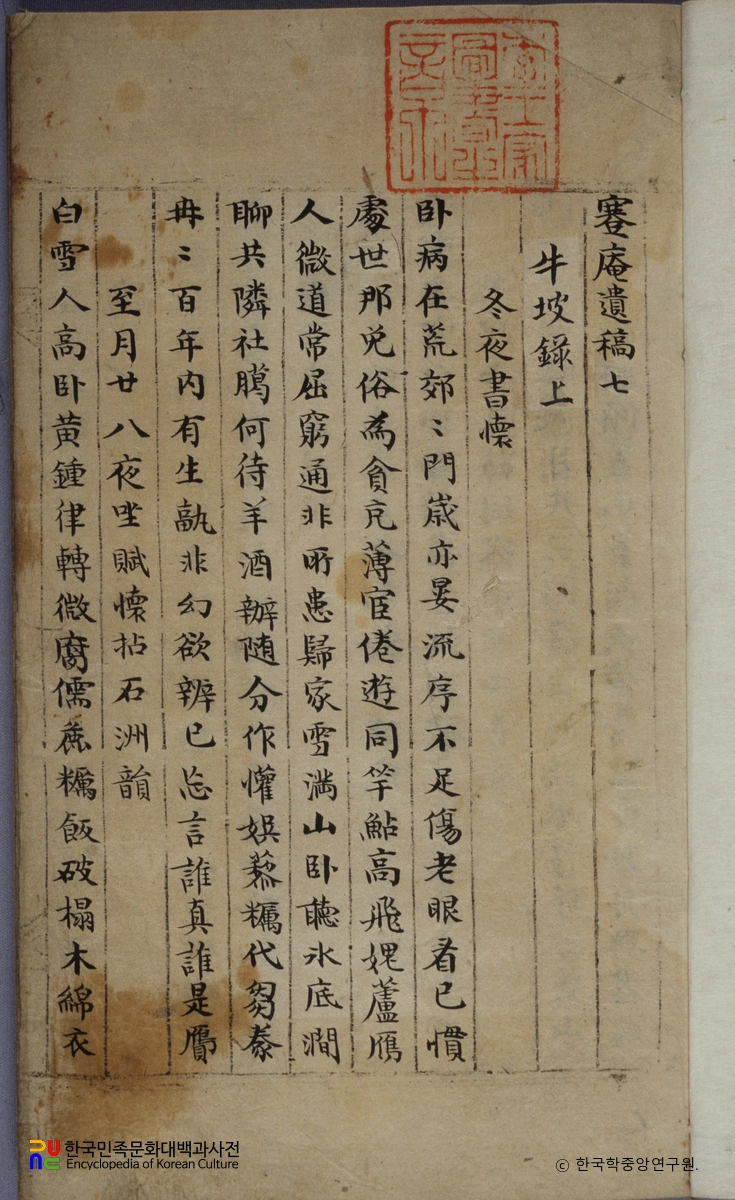 寋庵遺稿七
牛坡錄上
冬夜書懷
卧病在荒郊〻門歲亦晏流序不足傷老眼看已慣
處世那免俗為貪亢薄宦倦遊同竿鮎高飛媿蘆鴈
人微道常屈窮通非所患歸家雪滿山卧聽氷底澗
聊共隣社臈何待羊酒辦随分作懽娛蔾糲代芻豢
冉〻百年内有生孰非幻欲辨已忘言誰真誰是贗
至月廿八夜坐賦懷拈石洲韻
白雪人高卧黄鍾律轉微腐儒麁糲飯破榻木綿衣
한국민족문화대백과사전
Encyclopedia of Korean Culture
ⓒ 한국학중앙연구원.